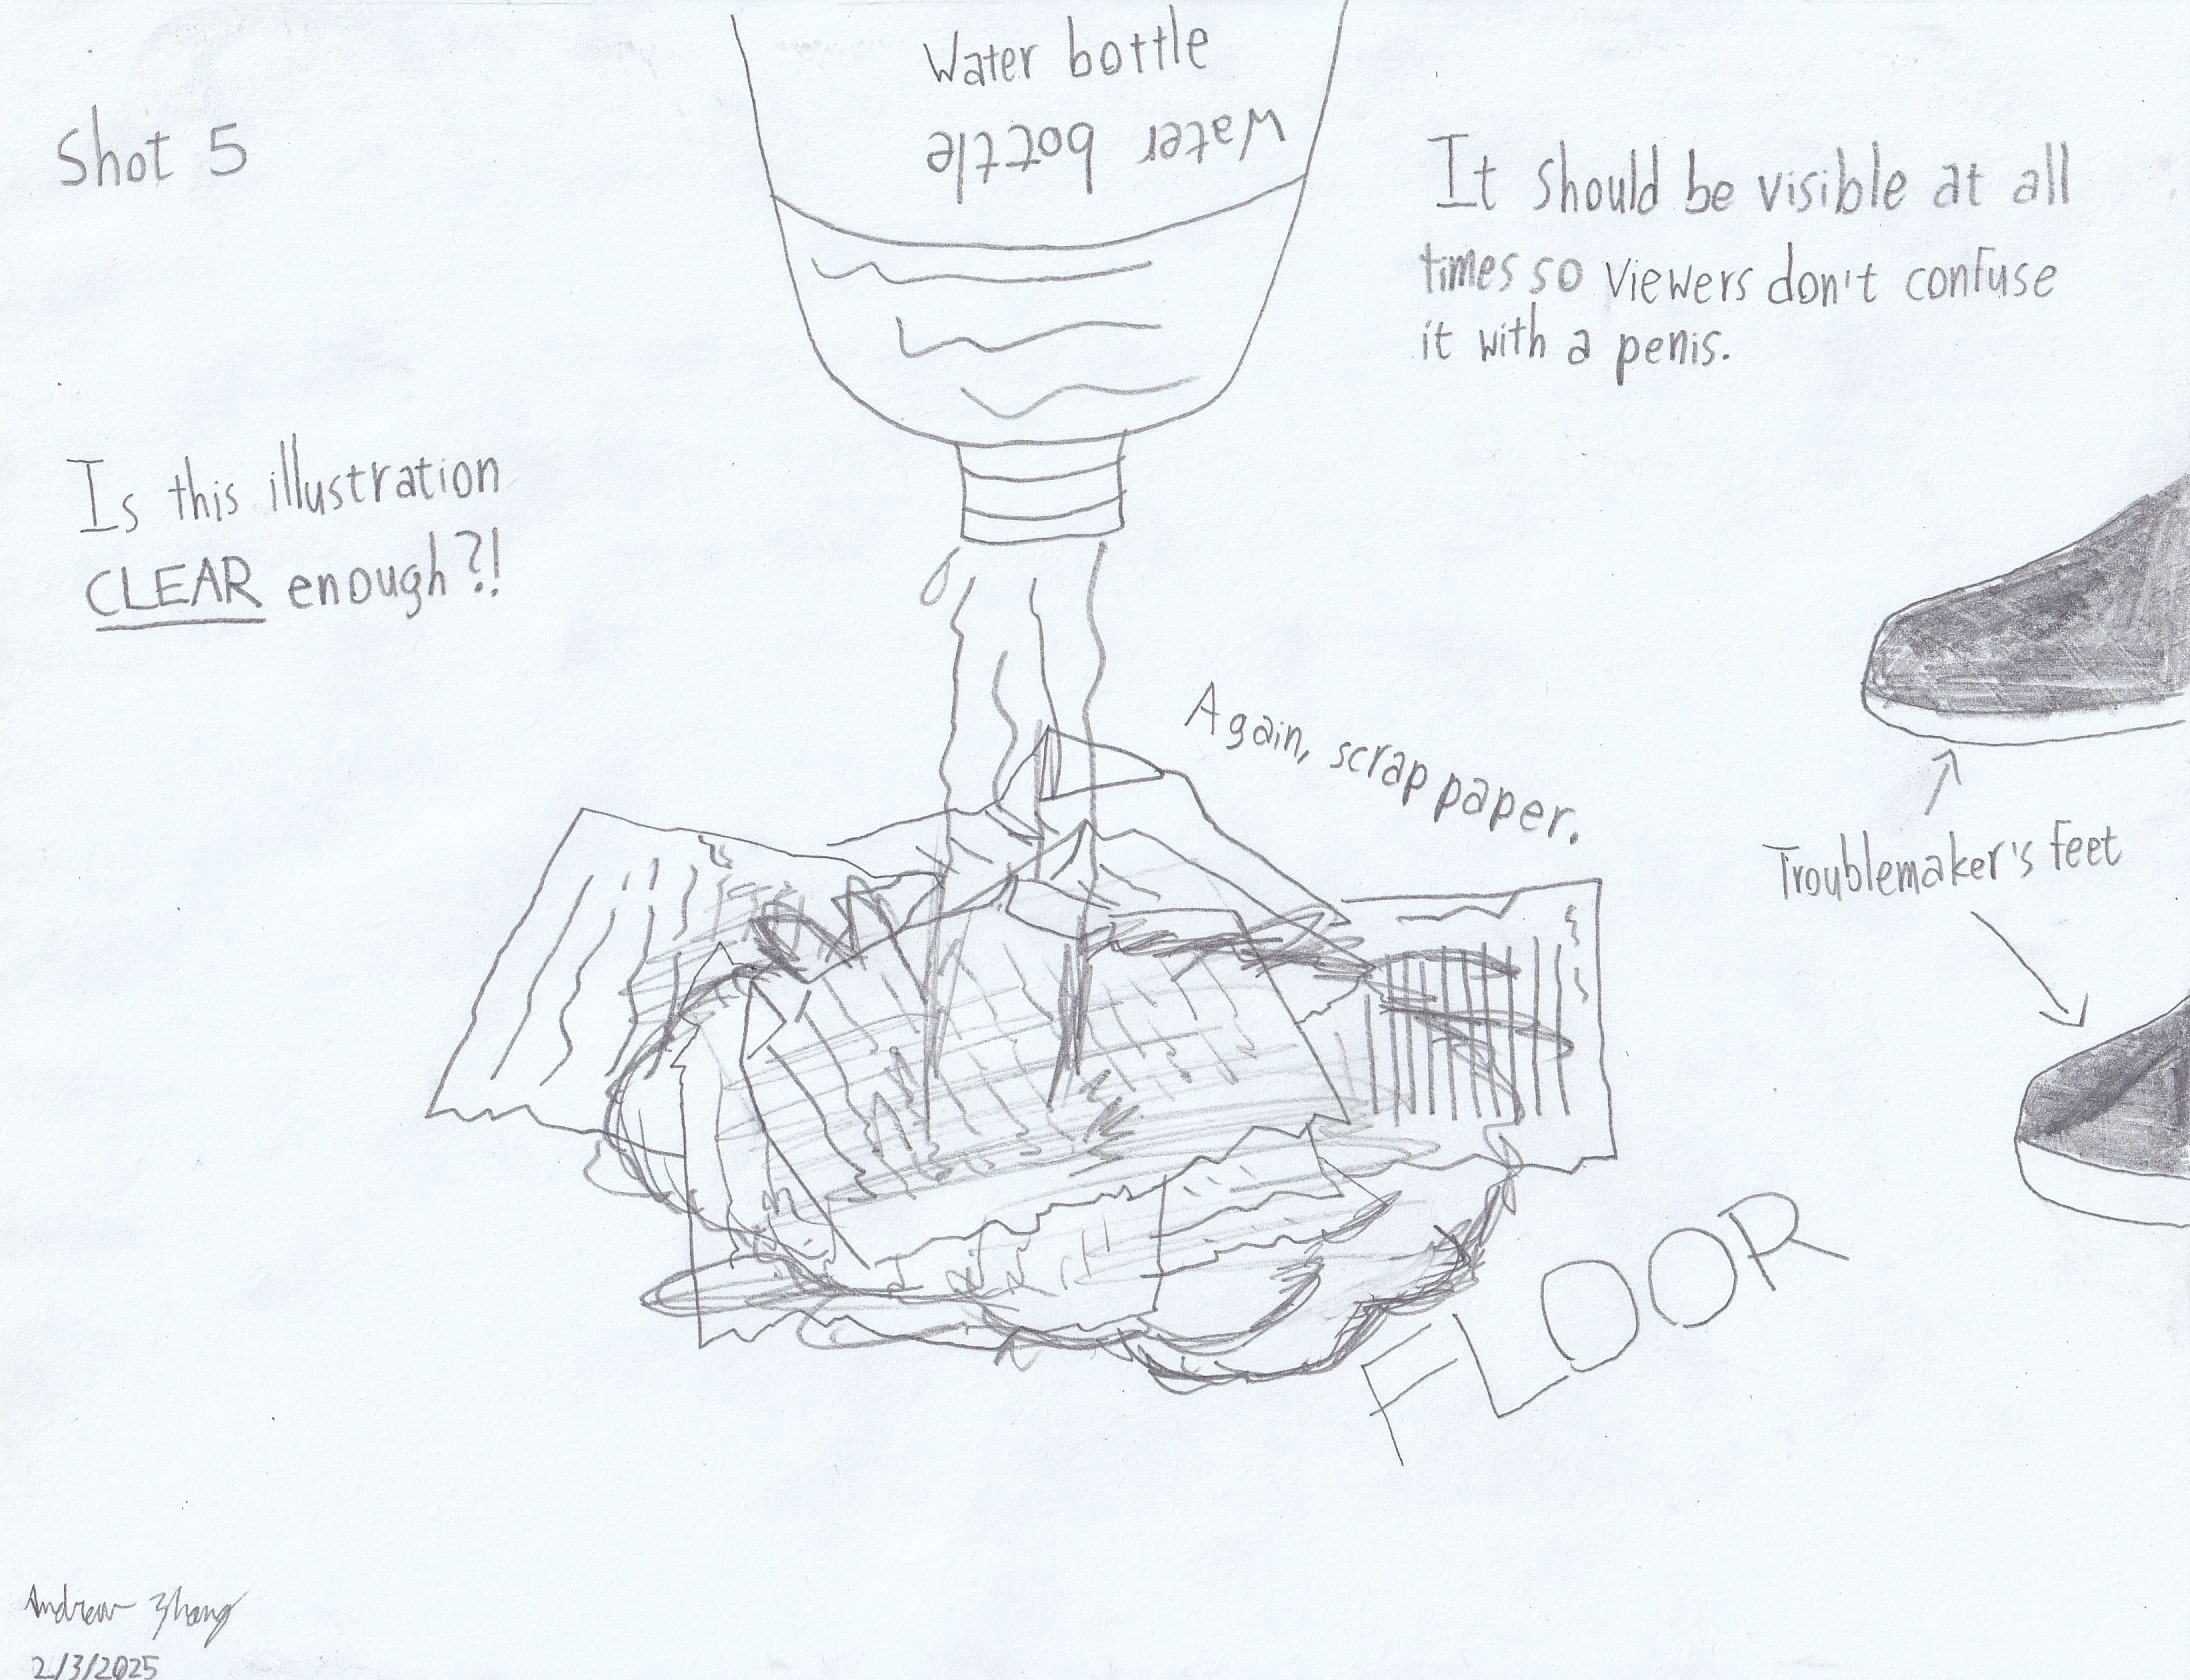 Water bottle
Water bottle
Shot 5
It should be visible at all
times so viewers don't confuse
it with a penis.
Is this illustration
CLEAR enough?!
Again, scrap paper.
Troublemaker's feet
FLOOR
Andrew Zhang
2/3/2025